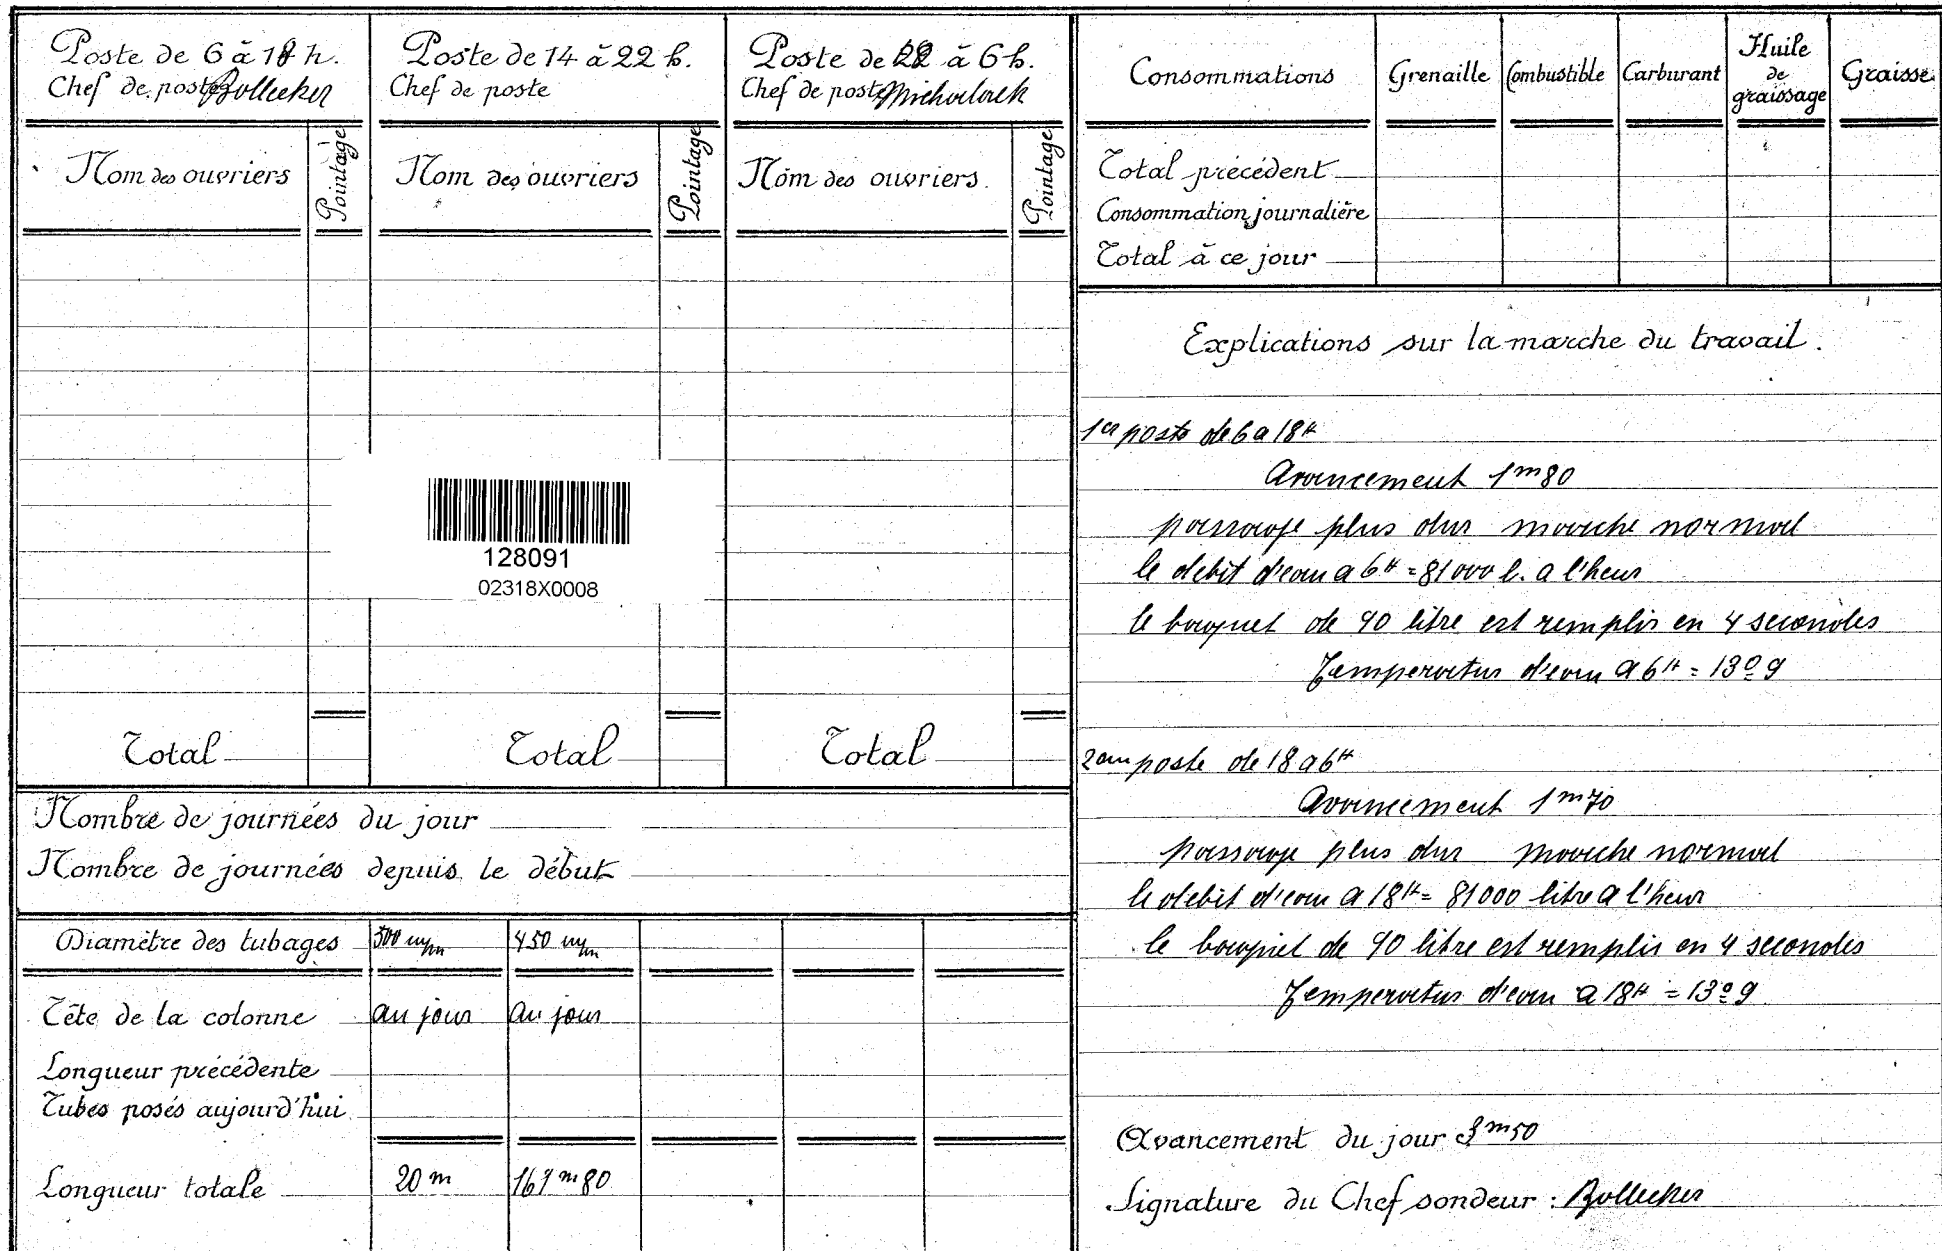 Poste de 6 à 18 h.
Chef de poste Bollecker
Nom des ouvriers
Pointage
Total
Poste de 14 à 22 h.
Chef de poste
Nom des ouvriers
Pointage
Total
Poste de 22 à 6 h.
Chef de poste
Nom des ouvriers
Pointage
Total
128091
02318X0008
Nombre de journées du jour
Nombre de journées depuis le début
Diamètre des tubages 500 m/m 450 m/m
Tête de la colonne au jour au jour
Longueur précédente
Tubes posés aujourd'hui
Longueur totale 20 m 80
Consommations Grenaille Combustible Carburant Huile de graissage Graisse
Total précédent
Consommation journalière
Total à ce jour
Explications sur la marche du travail.
1er poste de 6 a 18H
Avancement 1m80
passage plus dur marche normal
le debit d'eau a 6H = 81000 l. a l'heur
le baquet de 90 litre est remplis en 4 secondes
Temperatur d'eau a 6H = 13º9
2em poste de 18 a 6H
Avancement 1m70
passage plus dur marche normal
le debit d'eau a 18H = 81000 litre a l'heur
le baquet de 90 litre est remplis en 4 secondes
Temperatur d'eau a 18H = 13º9
Avancement du jour 3m50
Signature du Chef sondeur : Bollecker